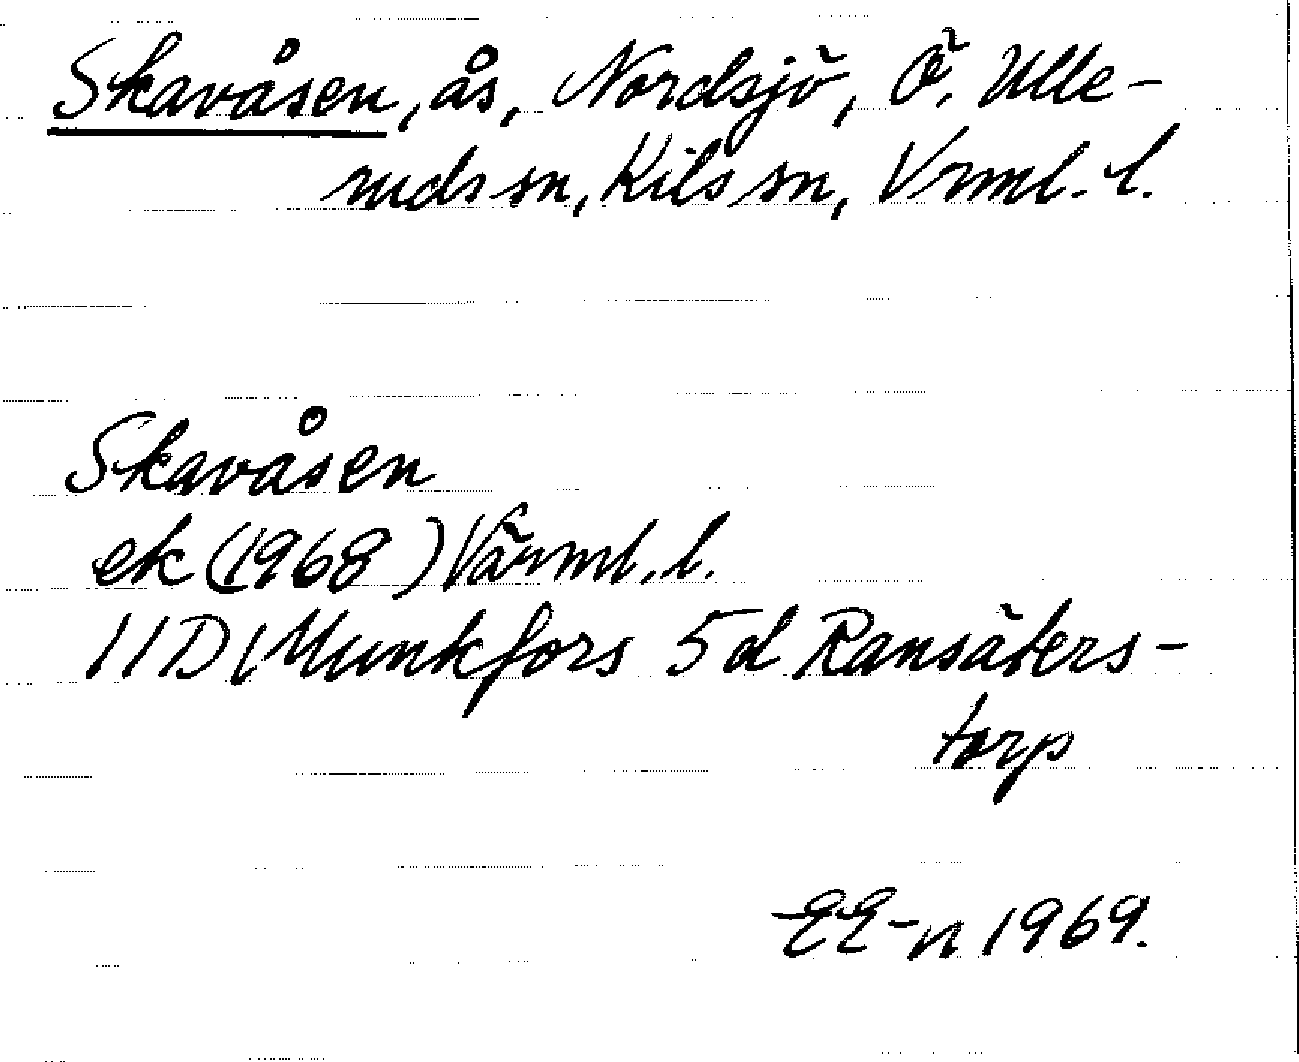 Skavåsen, ås, Nordsjö, Ö. Ulle-
ruds sn, Kils sn, Vrml. l.
Skavåsen
ek (1968) Värml. l.
11D Munkfors 5d Ransäters-
torp
EE-n 1969.